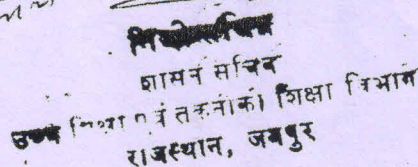 शासन सचिव
उच्च शिक्षा एवं तकनीकी शिक्षा विभाग
राजस्थान, जयपुर